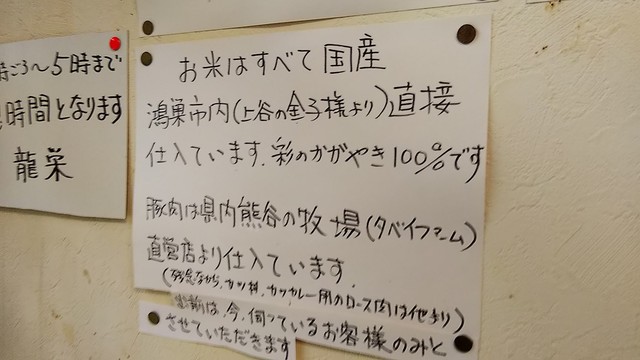 時ごろ〜5時まで
時間となります
龍栄
お米はすべて国産
鴻巣市内(上谷の金子様より)直接
仕入ています.彩のかがやき100%です
豚肉は県内熊谷の牧場(タベイファーム)
直営店より仕入ています.
(残念ながら,カツ丼,カツカレー用のロース肉は他より)
出前は、今、伺っているお客様のみと
させていただきます